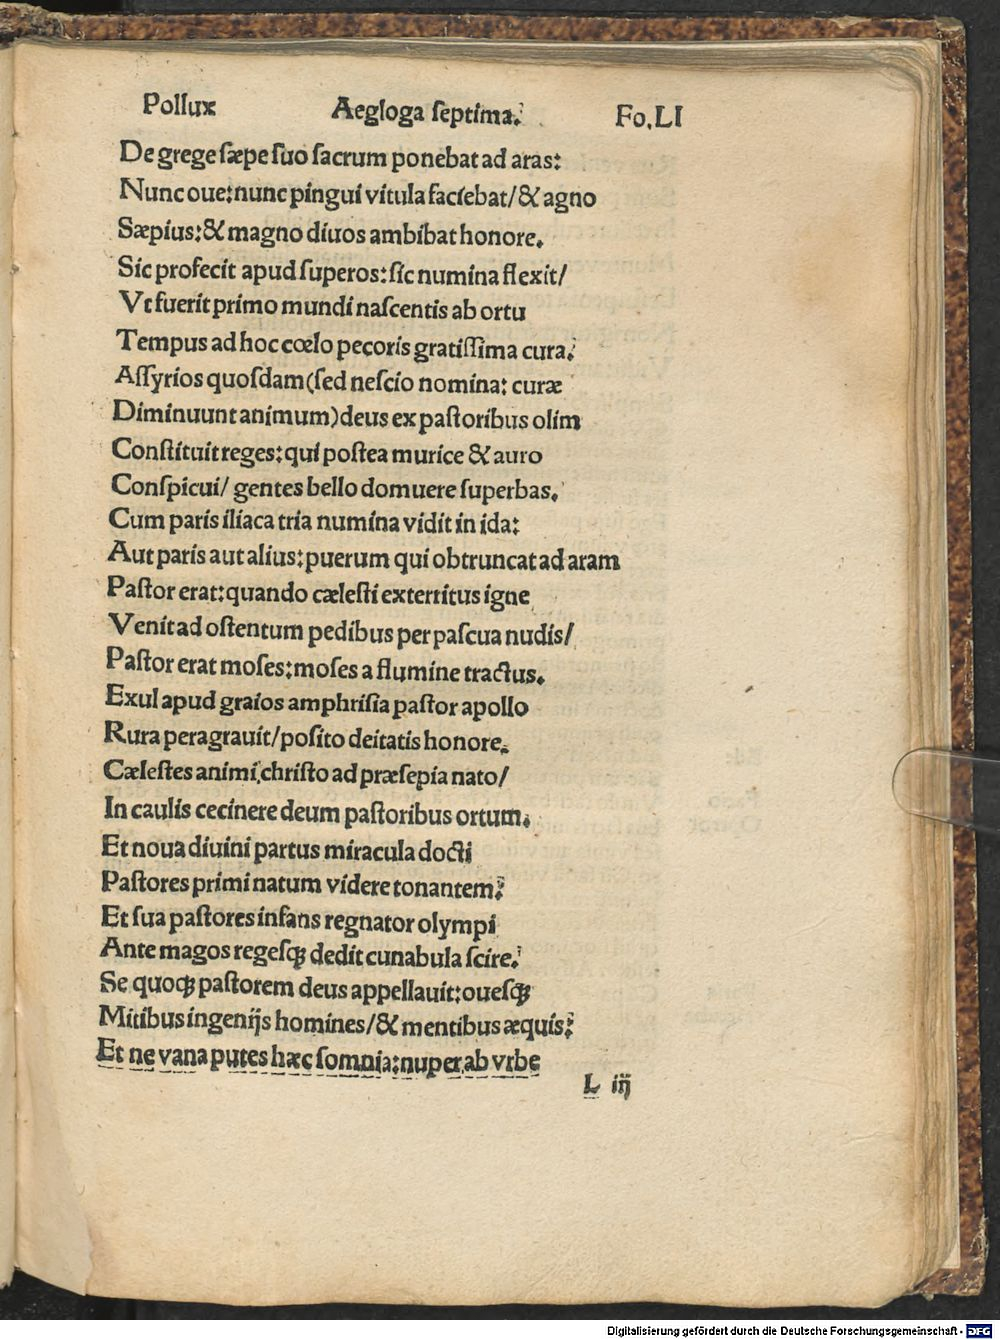 Pollux Aegloga septima. Fo.LI
De grege sæpe suo sacrum ponebat ad aras:
Nunc oue: nunc pingui vitula faciebat/ & agno
Sæpius: & magno diuos ambibat honore.
Sic profecit apud superos: sic numina flexit/
Vt fuerit primo mundi nascentis ab ortu
Tempus ad hoc cœlo pecoris gratissima cura.
Assyrios quosdam (sed nescio nomina: curæ
Diminuunt animum) deus ex pastoribus olim
Constituit reges: qui postea murice & auro
Conspicui/ gentes bello domuere superbas.
Cum paris iliaca tria numina vidit in ida:
Aut paris aut alius: puerum qui obtruncat ad aram
Pastor erat: quando cælesti exterritus igne
Venit ad ostentum pedibus per pascua nudis/
Pastor erat moses: moses a flumine tractus.
Exul apud graios amphrisia pastor apollo
Rura peragrauit/ posito deitatis honore.
Cælestes animi, christo ad præsepia nato/
In caulis cecinere deum pastoribus ortum.
Et noua diuini partus miracula docti
Pastores primi natum videre tonantem.
Et sua pastores infans regnator olympi
Ante magos regesꝗ dedit cunabula scire.
Se quoꝗ pastorem deus appellauit: ouesꝗ
Mitibus ingenijs homines/ & mentibus æquis.
Et ne vana putes hæc somnia: nuper ab vrbe
L iij
Digitalisierung gefördert durch die Deutsche Forschungsgemeinschaft - DFG